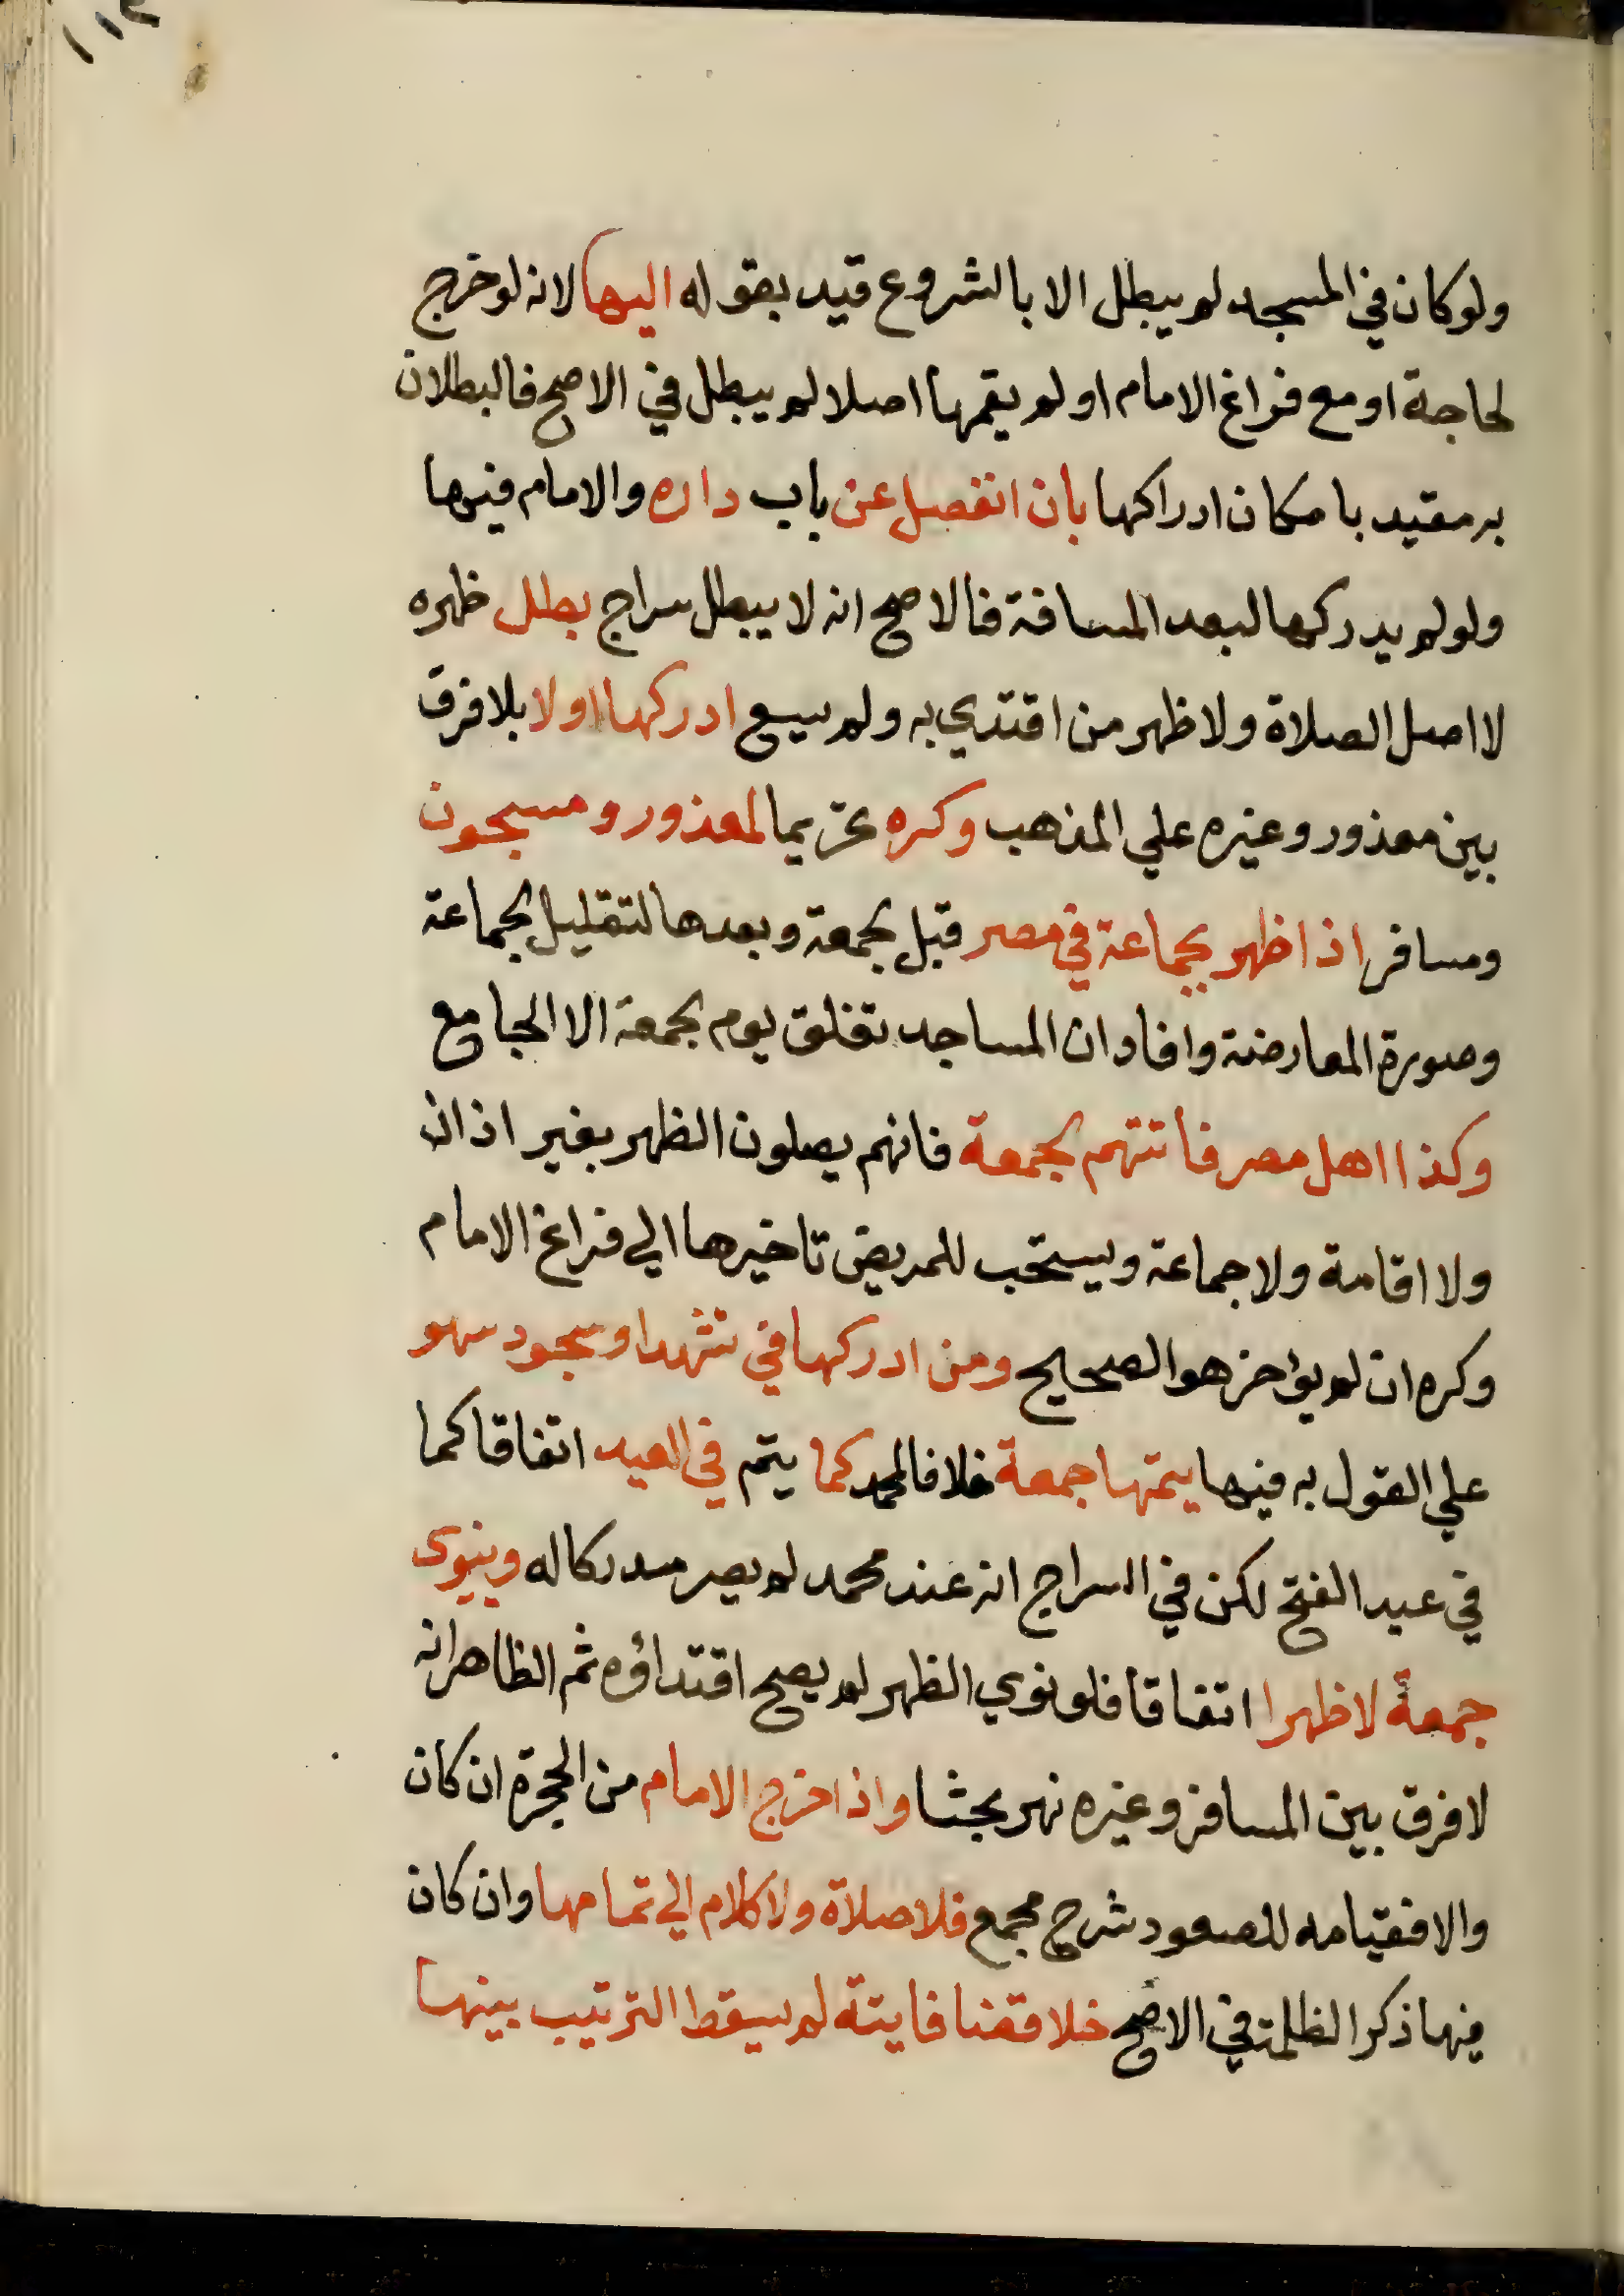 ١١٢
ولو كان في المسجد لم يبطل الا بالشروع قيد بقوله اليها لانه لو خرج
لحاجة او مع فراغ الامام او لم يقمها اصلا لم يبطل في الاصح فالبطلان
به مقيد بامكان ادراكها بان انفصل عن باب داره والامام فيها
ولو لم يدركها لبعد المسافة فالاصح انه لا يبطل سراج بطل ظهره
لا اصل الصلاة ولا ظهر من اقتدي به ولم يسع ادركها او لا بلا فرق
بين معذور وغيره علي المذهب وكره تحريما لمعذور ومسجون
ومسافر اذا ظهر بجماعة في مصر قبل لجمعة وبعدها لتقليل الجماعة
وصورة المعارضة وافاد ان المساجد تغلق يوم لجمعة الا الجامع
وكذا اهل مصر فاتتهم لجمعة فانهم يصلون الظهر بغير اذان
ولا اقامة ولا جماعة ويستحب للمريض تاخيرها الي فراغ الامام
وكره ان لم يؤخر هو الصحيح ومن ادركها في تشهد او سجود سهو
علي القول به فيها يتمها جمعة خلافا لمحمد كما يتم في العيد اتفاقا كما
في عيد الفتح لكن في السراج انه عند محمد لم يصر مدركا له وينوى
جمعة لا ظهرا اتفاقا فلو نوي الظهر لم يصح اقتداؤه ثم الظاهر انه
لا فرق بين المسافر وغيره نهر بحثا واذا خرج الامام من الحجرة ان كان
والا فقيامه للصعود شرح مجمع فلا صلاة ولا كلام الي تمامها وان كان
فيها ذكر الظلمة في الاصح خلا قضا فايتة لم يسقط الترتيب بينها